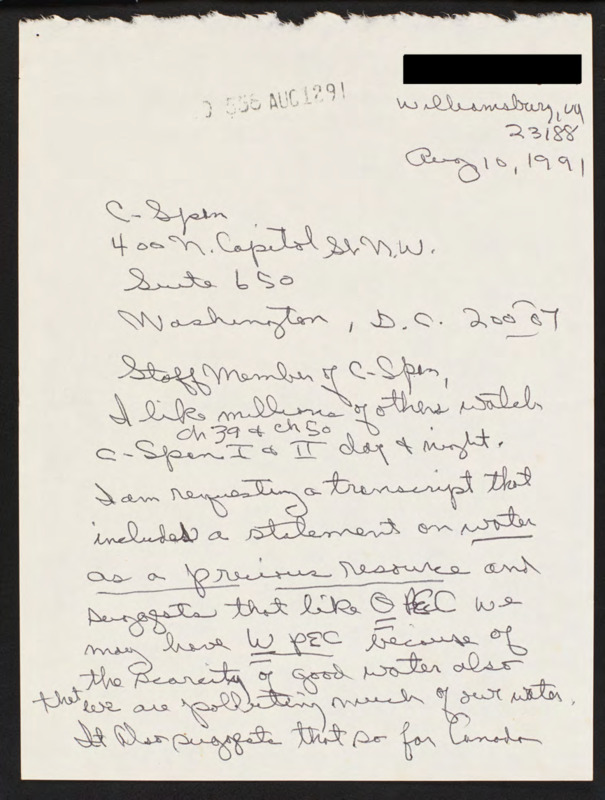 556 AUG 12 91
Williamsburg, VA
23188
Aug 10, 1991
C-Span
400 N. Capitol St. N.W.
Suite 650
Washington, D.C. 20007
Staff Member of C-Span,
I like millions of others watch
ch 39 & ch 50
C-Span I & II day & night.
I am requesting a transcript that
included a statement on water
as a precious resource and
suggests that like OPEC we
may have WPEC because of
the scarcity of good water also
that we are polluting much of our water.
It also suggests that so far Canada